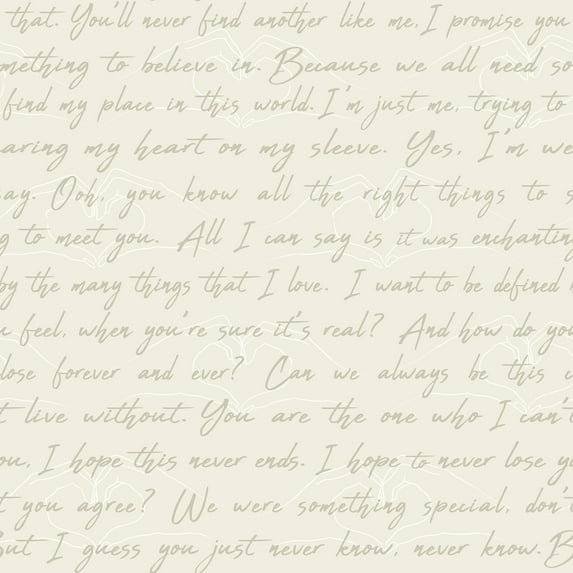 that. You'll never find another like me, I promise you
mething to believe in. Because we all need so
find my place in this world. I'm just me, trying to
aring my heart on my sleeve. Yes, I'm we
ay. Ooh, you know all the right things to s
g to meet you. All I can say is it was enchanting
by the many things that I love. I want to be defined
u feel, when you're sure it's real? And how do you
lose forever and ever? Can we always be this
t live without. You are the one who I can't
ou, I hope this never ends. I hope to never lose yo
t you agree? We were something special, don't
But I guess you just never know, never know. B